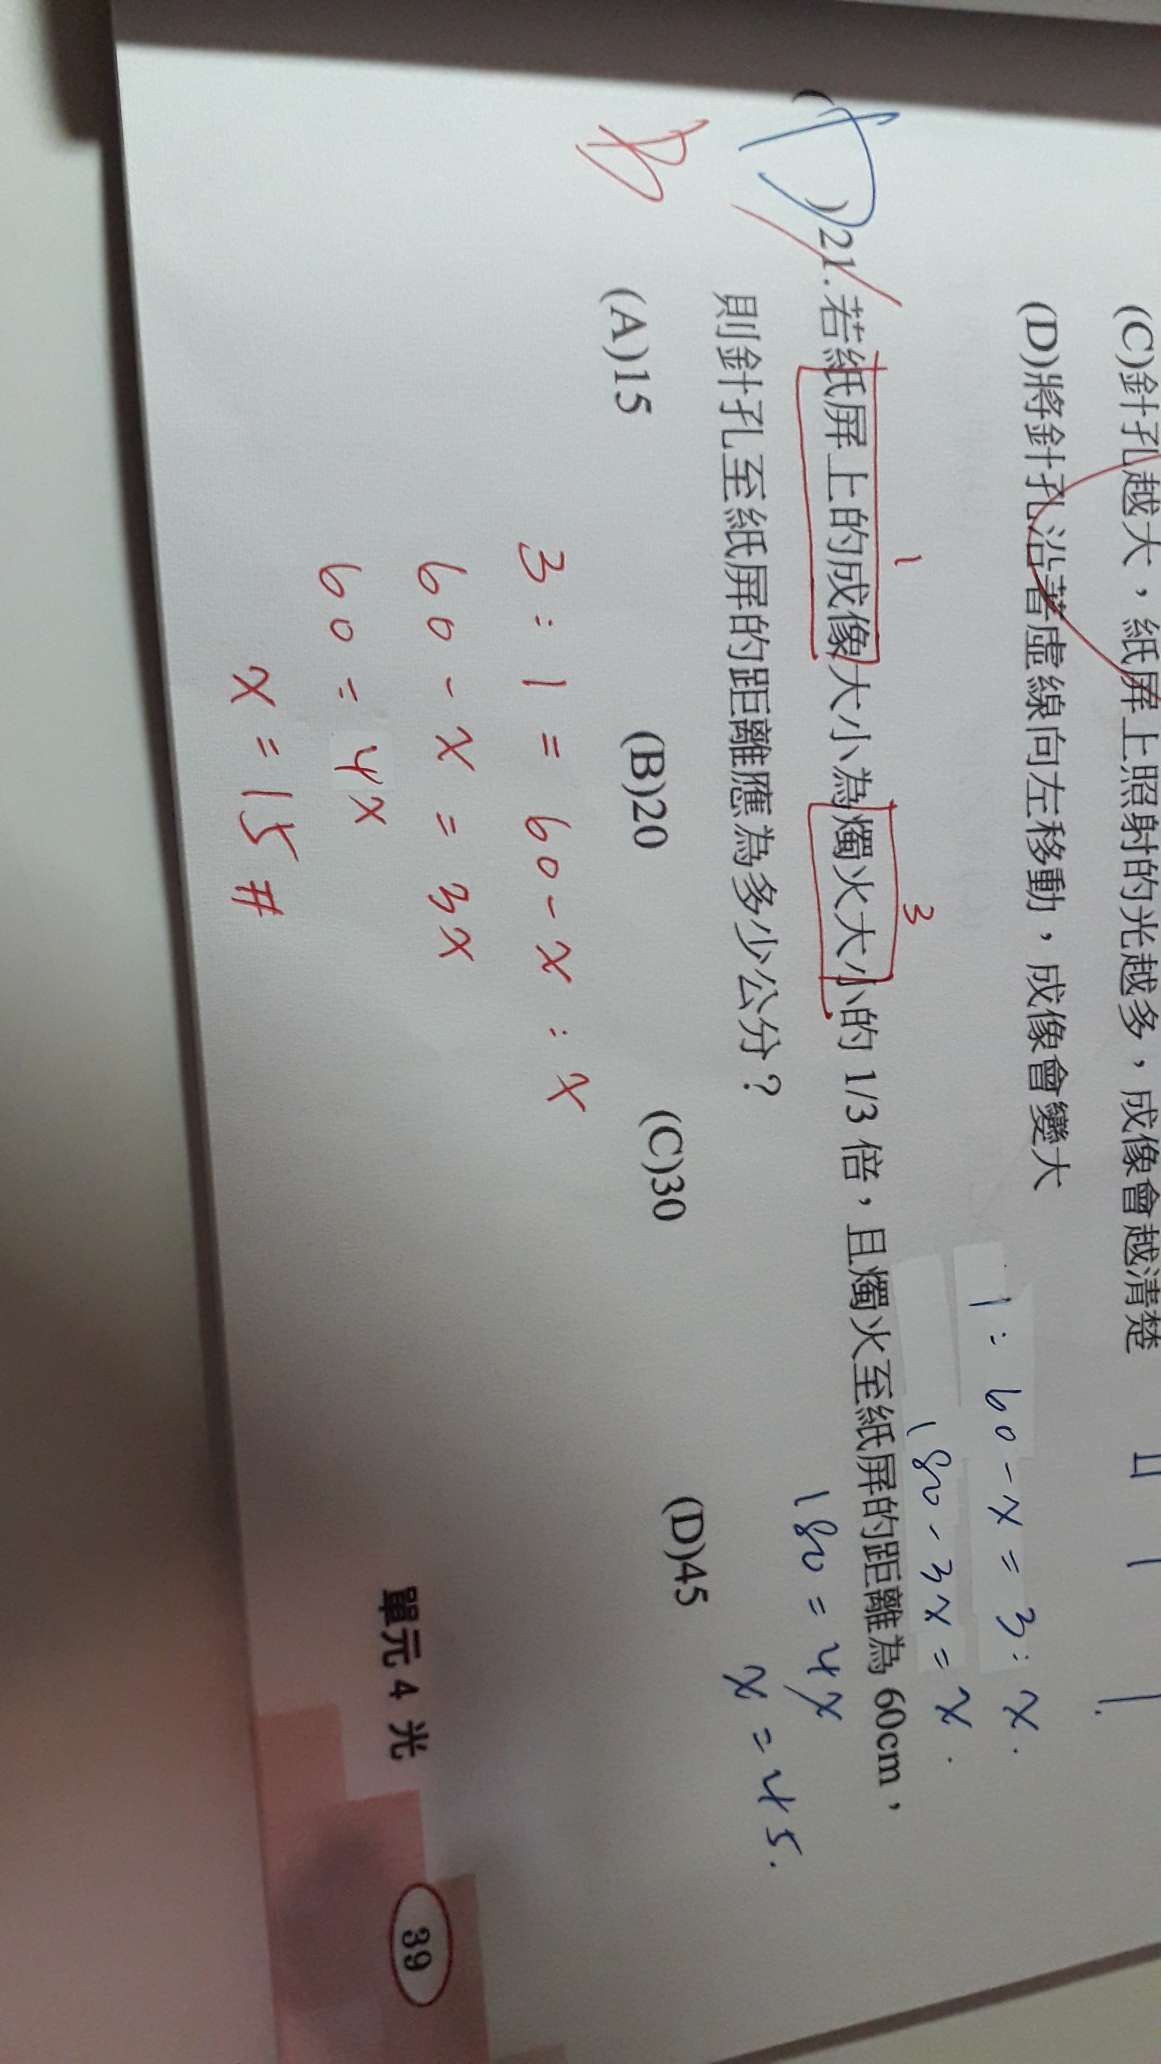 (C)針孔越大，紙屏上照射的光越多，成像會越清楚
(D)將針孔沿著虛線向左移動，成像會變大
1 : 60 - x = 3 : x.
180 - 3x = x.
180 = 4x
x = 45.
1
3
(D)21.若紙屏上的成像大小為燭火大小的 1/3 倍，且燭火至紙屏的距離為 60cm，
則針孔至紙屏的距離應為多少公分？
(A)15 (B)20 (C)30 (D)45
3 : 1 = 60 - x : x
60 - x = 3x
60 = 4x
x = 15 #
單元 4 光
39